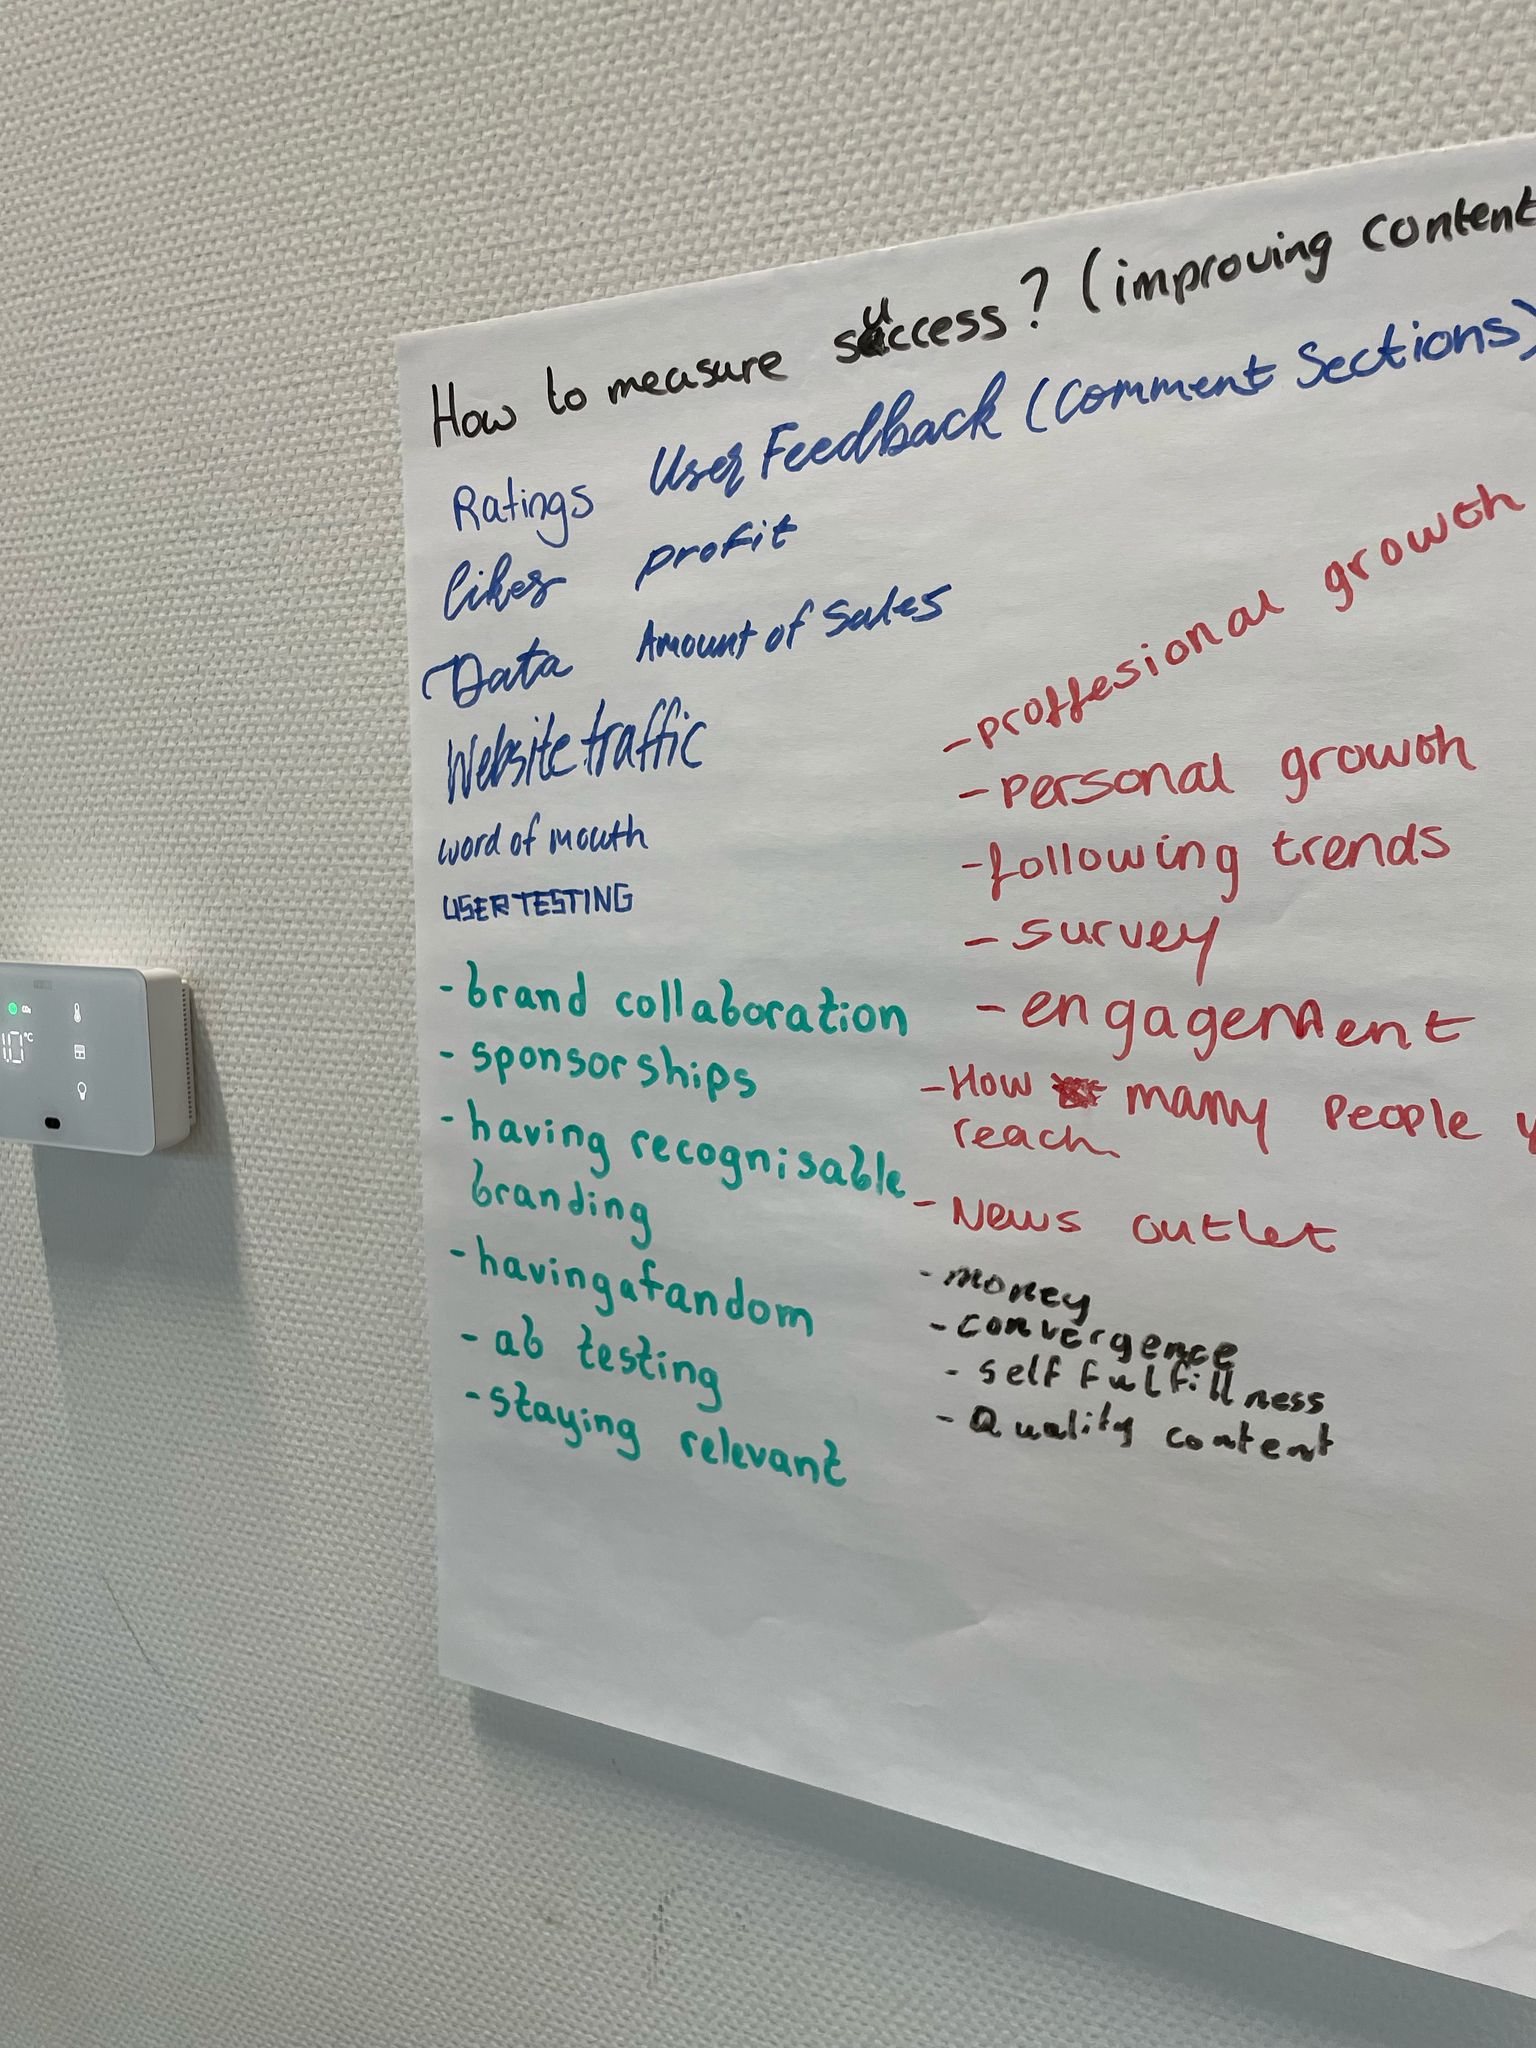 How to measure success? (improving content
Ratings User Feedback (Comment Sections)
likes profit
Data Amount of Sales
Website traffic
word of mouth
USER TESTING
- brand collaboration
- sponsorships
- having recognisable
branding
- having a fandom
- ab testing
- staying relevant
- proffesional growth
- personal growth
- following trends
- survey
- engagement
- How many people
reach
- News outlet
- money
- convergence
- self fulfillness
- Quality content